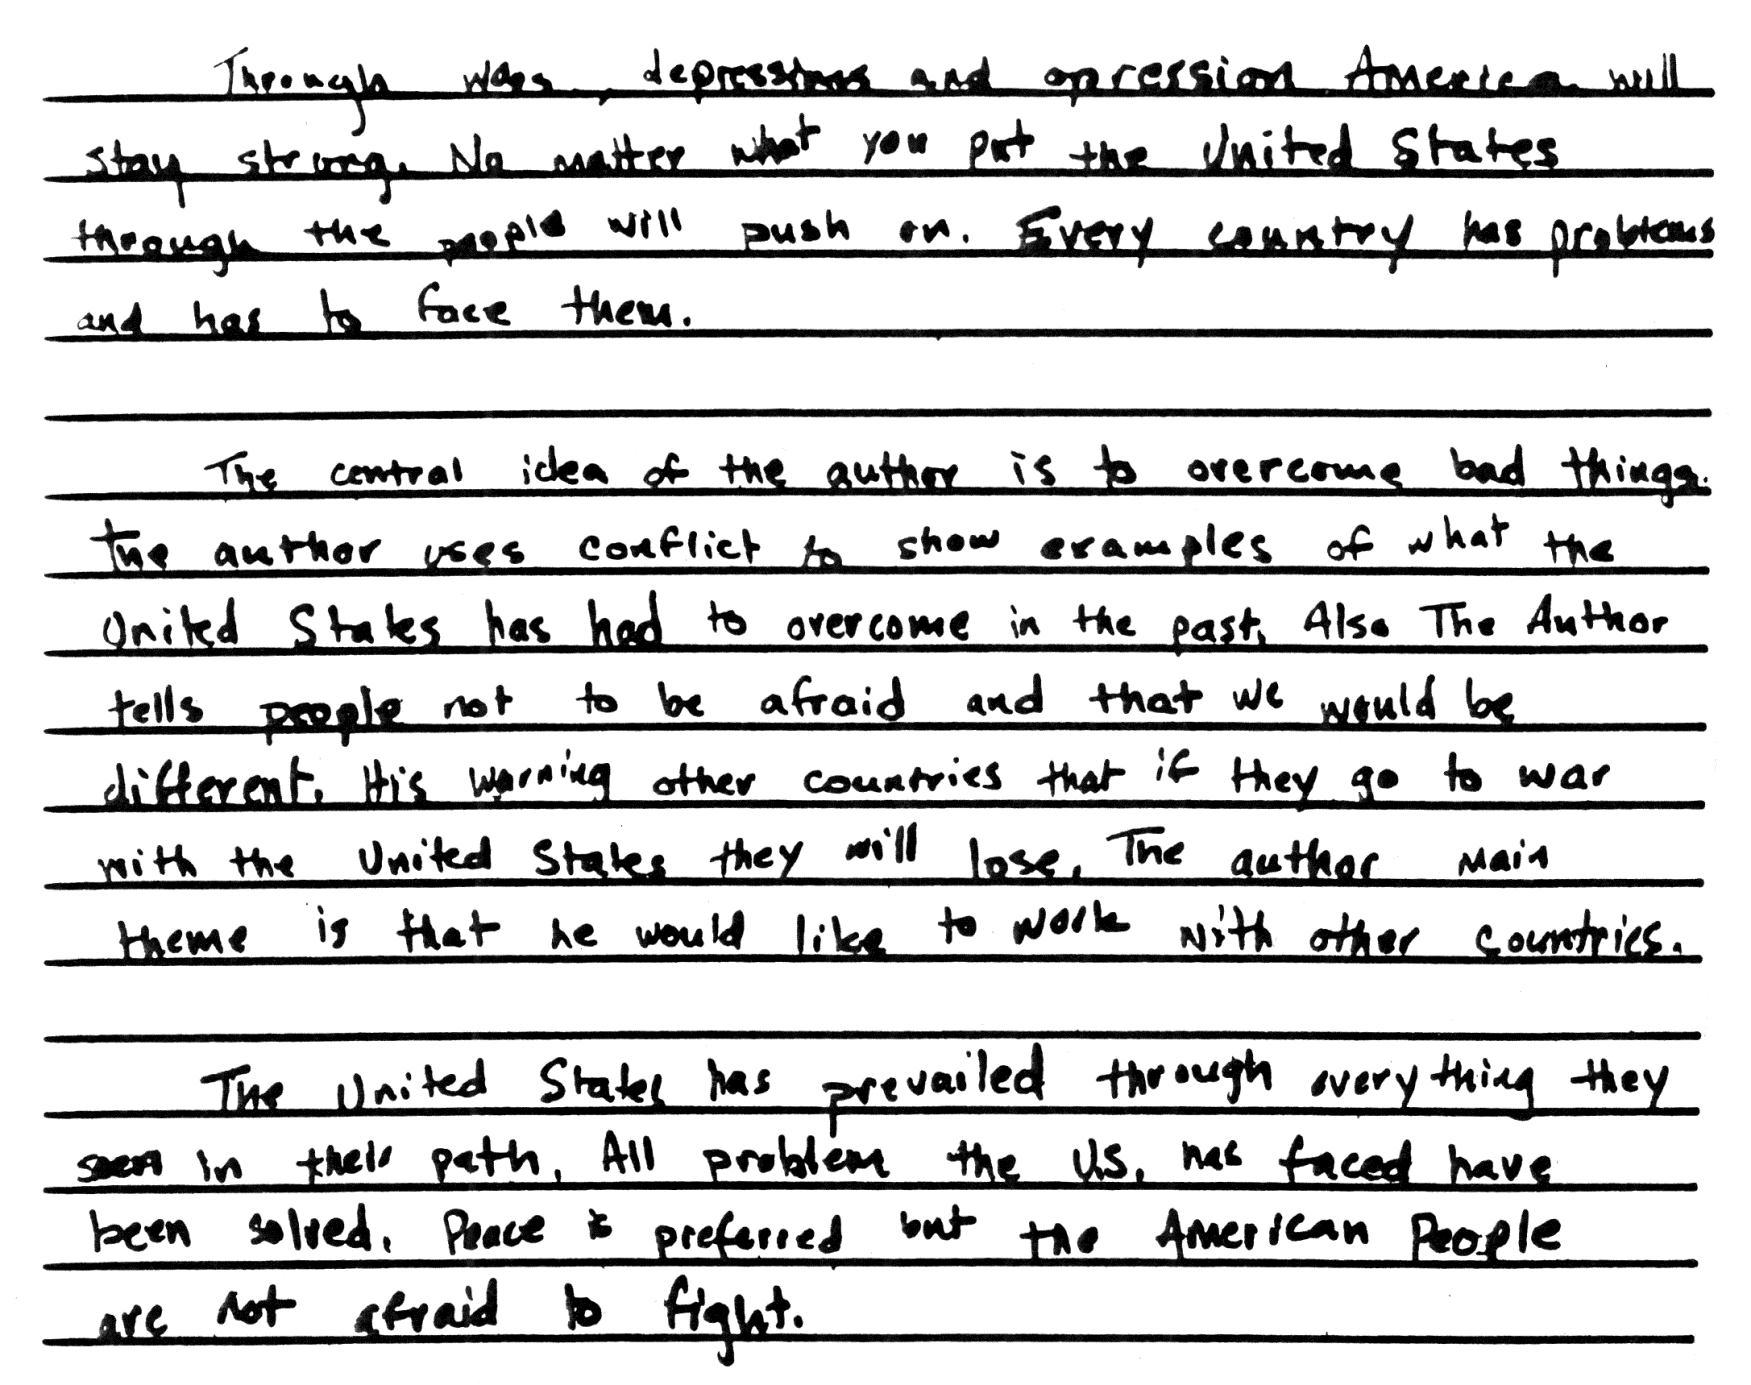 Through wars, depressions and opression America will
stay strong. No matter what you put the United States
through the people will push on. Every country has problems
and has to face them.
The central idea of the author is to overcome bad things.
The author uses conflict to show examples of what the
United States has had to overcome in the past. Also The Author
tells people not to be afraid and that we would be
different. His warning other countries that if they go to war
with the United States they will lose. The author main
theme is that he would like to work with other countries.
The United States has prevailed through everything they
seen in their path. All problem the U.S. has faced have
been solved. Peace is preferred but the American People
are not afraid to fight.